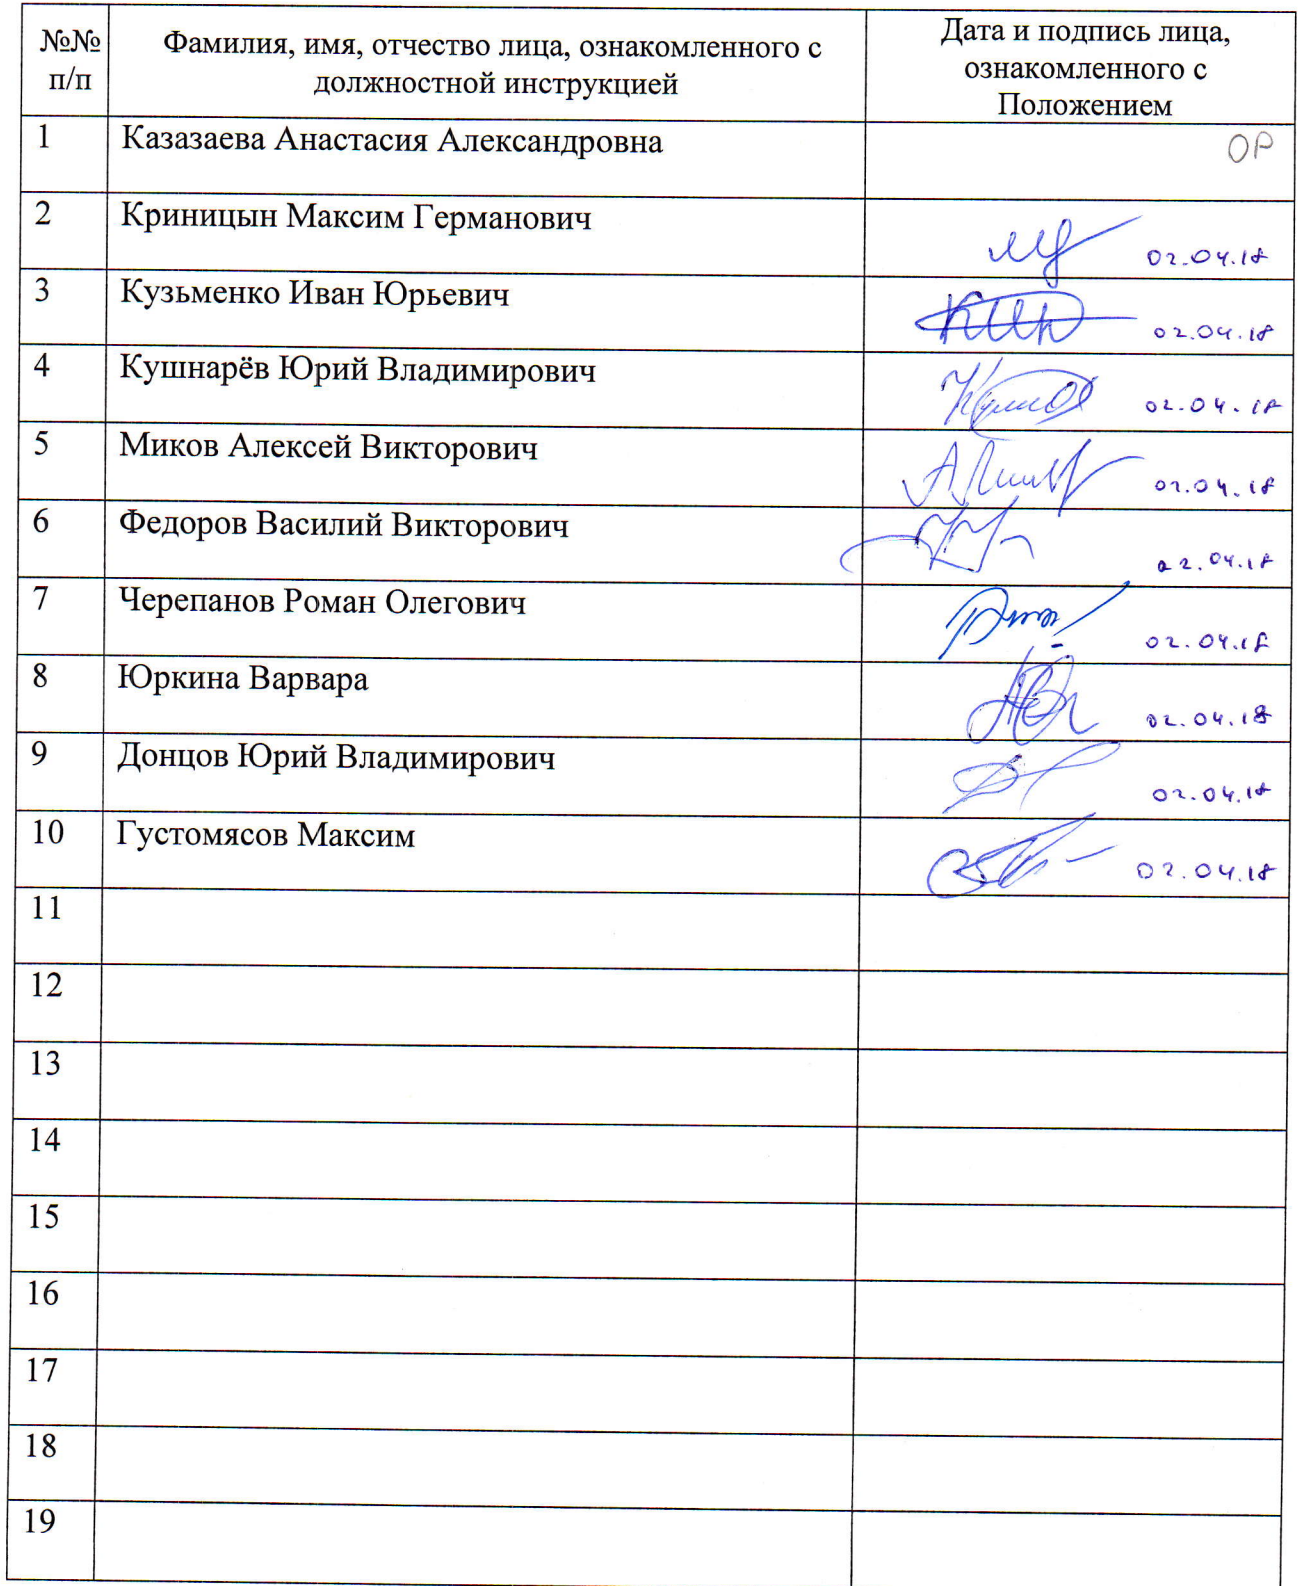 №№ п/п
Фамилия, имя, отчество лица, ознакомленного с
должностной инструкцией
Дата и подпись лица,
ознакомленного с
Положением
1 Казазаева Анастасия Александровна ОР
2 Криницын Максим Германович 02.04.18
3 Кузьменко Иван Юрьевич 02.04.18
4 Кушнарёв Юрий Владимирович 02.04.18
5 Миков Алексей Викторович 02.04.18
6 Федоров Василий Викторович 02.04.18
7 Черепанов Роман Олегович 02.04.18
8 Юркина Варвара 02.04.18
9 Донцов Юрий Владимирович 02.04.18
10 Густомясов Максим 02.04.18
11
12
13
14
15
16
17
18
19